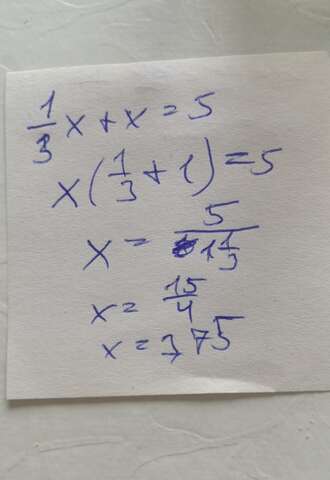 1/3 x + x = 5
x(1/3 + 1) = 5
x = 5/(1 1/3)
x = 15/4
x = 3,75